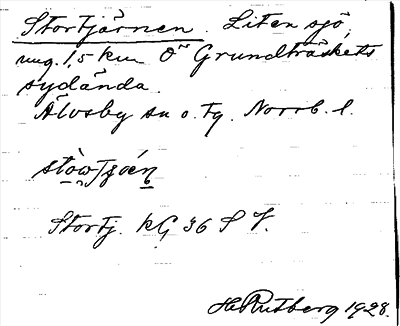 Stortjärnen. Liten sjö,
ung. 1,5 km Ö Grundträskets
sydända.
Älvsby sn o. tg. Norrb. l.
Stortj. kG 36 S V.
H. Rutberg 1928.